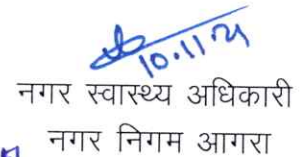 10.11.21
नगर स्वास्थ्य अधिकारी
नगर निगम आगरा